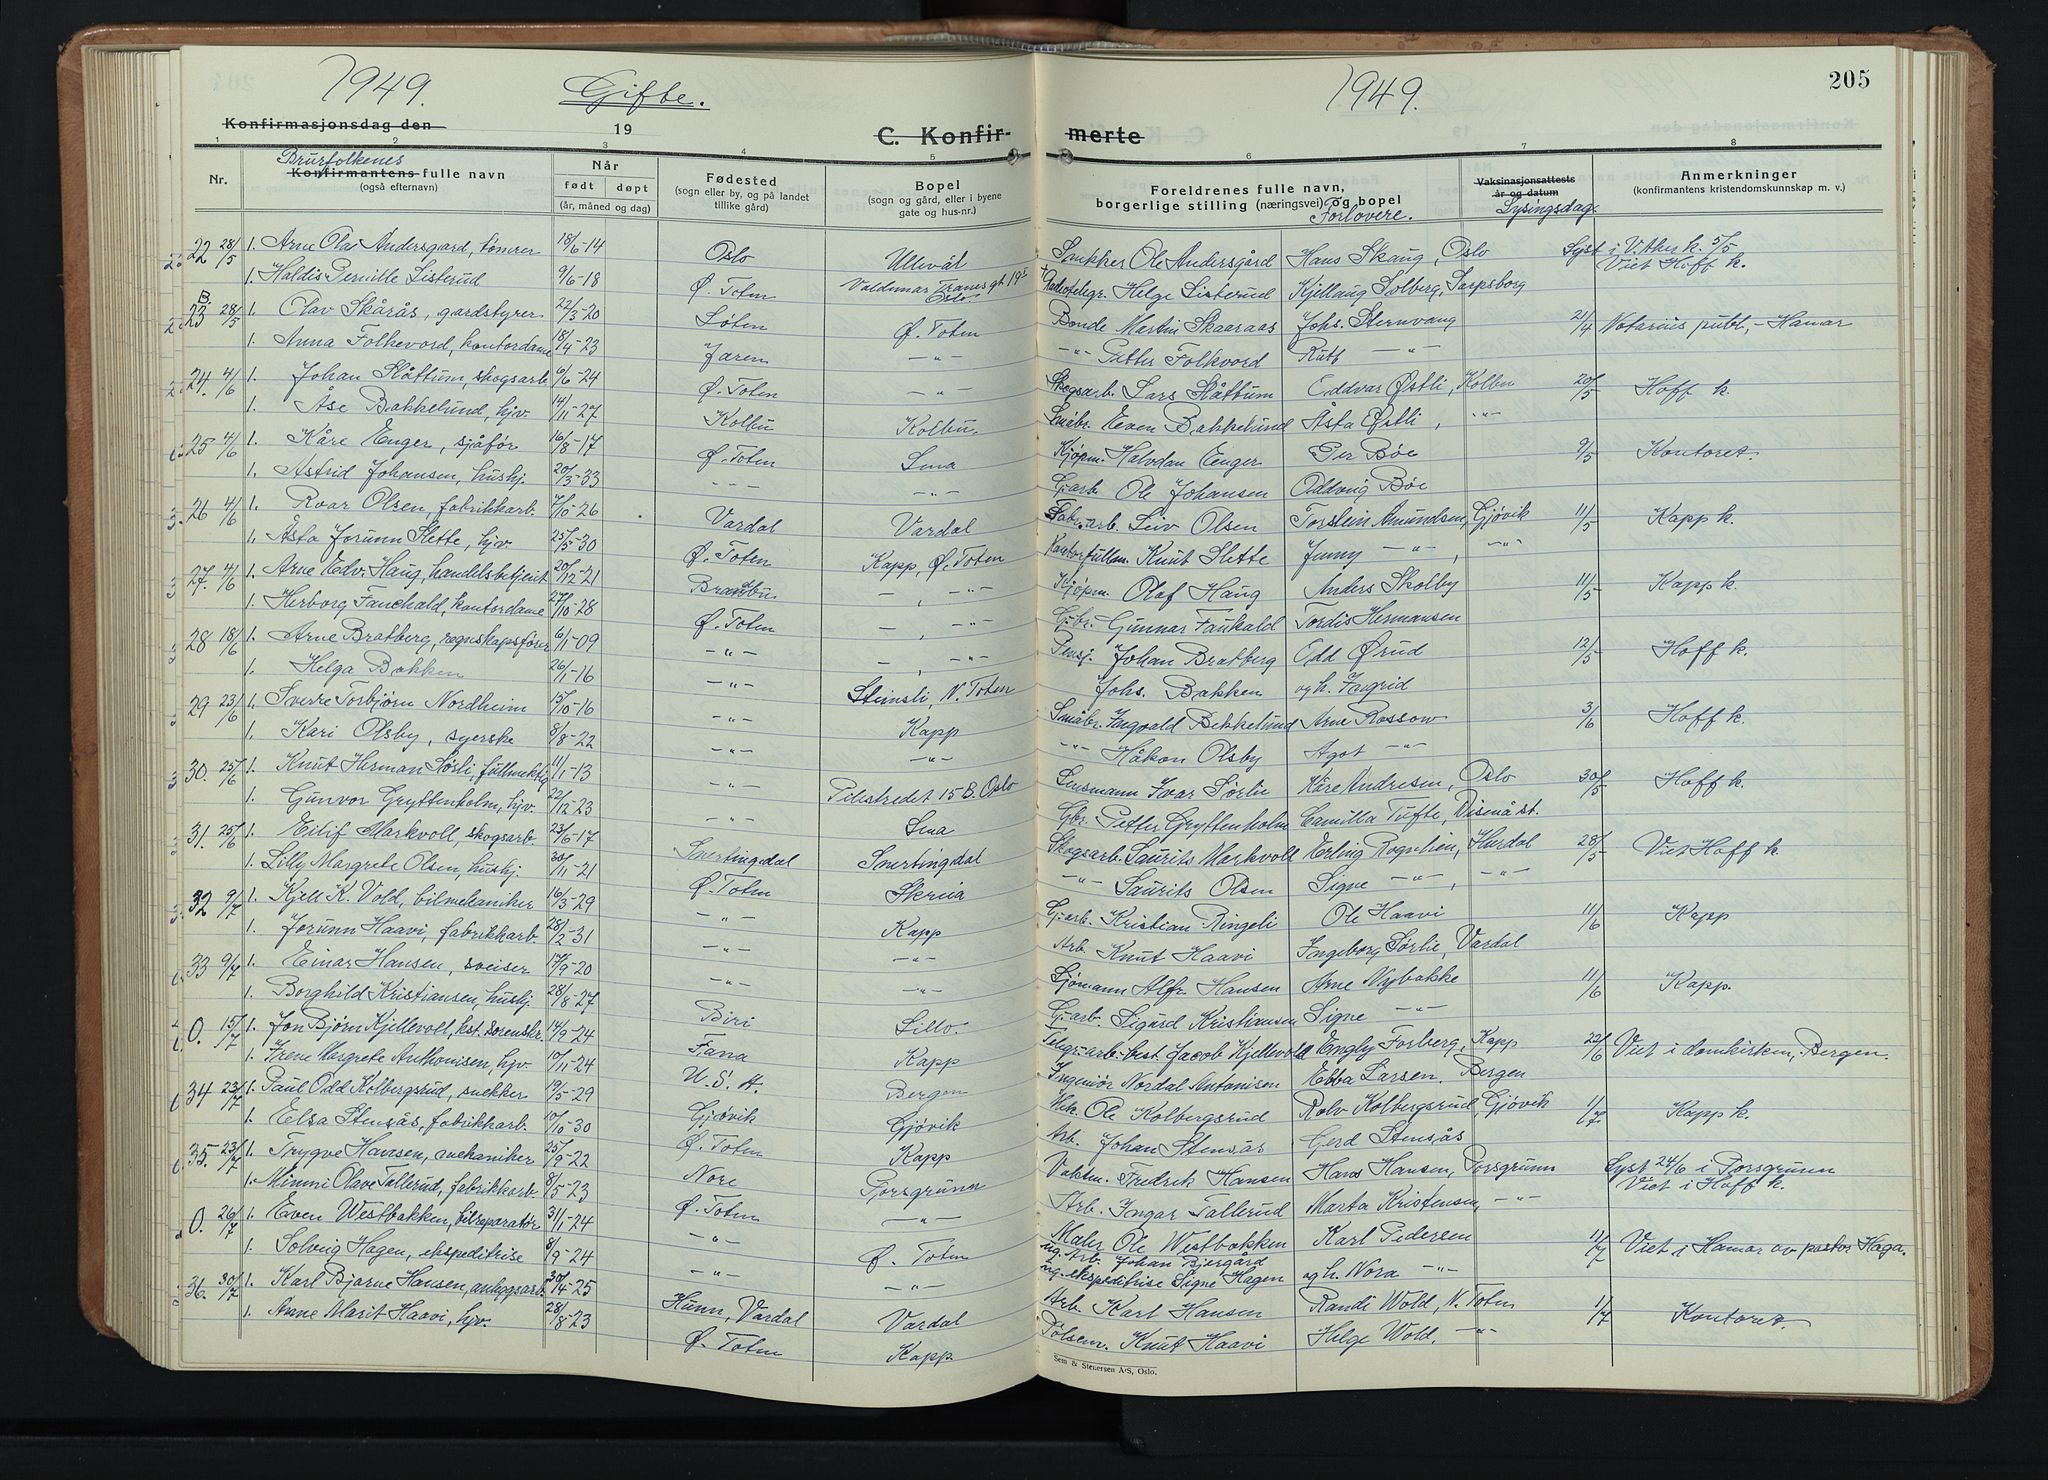 1949. Gifte. 1949. 205
Konfirmasjonsdag den 19 C. Konfir- merte
1 2 3 4 5 6 7 8
Nr. Brurfolkenes Konfirmantens fulle navn (også efternavn) Når født døpt (år, måned og dag) Fødested (sogn eller by, og på landet tillike gård) Bopel (sogn og gård, eller i byene gate og hus-nr.) Foreldrenes fulle navn, borgerlige stilling (næringsvei) og bopel Forlovere. Vaksinasjonsattests år og datum Lysingsdag. Anmerkninger (konfirmantens kristendomskunnskap m. v.)
22 28/5 1. Arne Ola Andersgard, tømrer 18/6-14 Oslo Ullevål Snekker Ole Andersgård Hans Skaug, Oslo Lyst i V. Aker k. 5/5 Viet Hoff k.
1. Haldis Pernille Listerud 9/6-18 Ø. Toten Valdemar Tranes gt. 19 Oslo Helge Listerud Kjellaug Solberg, Sarpsborg
B. 23 28/5 1. Olav Skårås, gardstyrer 22/3-20 Løten Ø. Toten Bonde Martin Skaaraas Johs. Sternvang 21/4 Notarius publ., - Hamar
1. Anna Folkevord, kontordame 18/4-23 Jæren -"- -"- Petter Folkvord Rutt -"-
24. 4/6 1. Johan Slåttum, skogsarb. 6/6-24 Ø. Toten -"- Skogsarb. Lars Slåttum Eddvar Østli, Kolbu 20/5 Hoff k.
1. Åse Bakkelund, hjv. 14/11-27 Kolbu Kolbu. Småbr. Even Bakkelund Åsta Østli, -"-
25 4/6 1. Kåre Enger, sjåfør 16/8-17 Ø. Toten Lena Kjøpm. Halvdan Enger Per Bøe 9/5 Kontoret.
1. Astrid Johansen, hushj. 20/3-33 -"- -"- G.arb. Ole Johansen Oddvig Bøe
26 4/6 1. Roar Olsen, fabrikkarb. 7/10-26 Vardal Vardal Fabr.arb. Leiv Olsen Torstein Amundsen, Gjøvik 11/5 Kapp k.
1. Åsta Jorunn Slette, hjv. 25/5-30 Ø. Toten Kapp, Ø. Toten Kontorfullm. Knut Slette Jenny -"-, -"-
27. 4/6 1. Arne Edv. Haug, handelsbetjent 20/12-21 Brandbu -, -"- Kjøpm. Olaf Haug Anders Skolby 11/5 Kapp k.
1. Herborg Fauchald, kontordame 27/10-28 Ø. Toten -, -"- Gbr. Gunnar Faukald Tordis Hermansen
28 18/6 1. Arne Bratberg, regnskapsfører 6/1-09 -"- -, -"- Pensj. Johan Bratberg Odd Ørud 12/5 Hoff k.
1. Helga Bakken 26/1-16 -"- Johs. Bakken og h. Ingrid
29 23/6 1. Sverre Torbjørn Nordheim 15/10-16 -"- Steinsli, N. Toten Småbr. Ingvald Bekkelund Arne Rossow 3/6 Hoff k.
1. Kari Olsby, syerske 8/8-22 -"- Kapp -"- Håkon Olsby Agot -"-
30. 25/6 1. Knut Herman Sørli, fullmektig 11/1-13 -"- Pilestredet 15 B. Oslo Lensmann Ivar Sørlie Kåre Andresen, Oslo 30/5 Hoff k.
1. Gunvor Gryttenholm, hjv. 22/12-23 -"- Lena Gbr. Petter Gryttenholm Camilla Tufte, Disenå st.
31. 25/6 1. Eilif Markvoll, skogsarb. 23/6-17 Snertingdal Snertingdal Skogsarb. Laurits Markvoll Erling Rognlien, Hurdal 28/5 Viet Hoff k.
1. Lilly Margrete Olsen, hushj. 30/11-21 Ø. Toten Skreia -"- Laurits Olsen Signe -"-, -"-
32 9/7 1. Kjell K. Vold, bilmekaniker 16/3-29 -"- Kapp G.arb. Kristian Ringeli Ole Haavi 11/6 Kapp
1. Jorunn Haavi, fabrikkarb. 28/2-31 -"- -"- Arb. Knut Haavi Ingeborg Sørlie, Vardal
33 9/7 1. Einar Hansen, sveiser 17/9-20 -"- -"- Sjømann Alfr. Hansen Arne Nybakke 11/6 Kapp.
1. Borghild Kristiansen, hushj. 28/8-27 Biri Lillo. G.arb. Sigurd Kristiansen Signe -"-
0. 15/7 1. Jon Bjørn Kjellevoll, kst. sorenskr. 14/9-24 Fana Kapp Telegr.arb.best. Jacob Kjellevold Engly Forberg, Kapp 22/6 Viet i domkirken, Bergen.
1. Irene Margrete Anthonisen, hjv. 10/11-24 U. S. A. Bergen Ingeniør Nordal Antonisen Ebba Larsen. Bergen
34 23/7 1. Paul Odd Kolbergsrud, snekker 19/5-29 Gjøvik Gjøvik Ole Kolbergsrud Rolv Kolbergsrud, Gjøvik 1/7 Kapp k.
1. Elsa Stensås, fabrikkarb. 10/10-30 Ø. Toten Kapp Arb. Johan Stensås Gerd Stensås
35. 23/7 1. Trygve Hansen, mekaniker 25/9-22 Nore Porsgrunn Vaktm. Fredrik Hansen Hans Hansen, Porsgrunn Lyst 24/6 i Porsgrunn Viet i Hoff k.
1. Mimmi Olave Tallerud, fabrikkarb. 8/5-23 Ø. Toten -"- Arb. Ingar Tallerud Marta Kristensen, -"-
0. 26/7 1. Even Westbakken, bilreparatør 31/1-24 -"- Ø. Toten Maler Ole Westbakken Karl Pedersen 11/7 Viet i Hamar av pastor Haga.
1. Solveig Hagen, ekspeditrise 8/9-24 -"- -"- ug. Arb. Johan Bjergård ug. ekspeditrise Signe Hagen og h. Nora -"-
36. 30/7 1. Karl Bjarne Hansen, anleggsarb. 30/4-25 Hunn, Vardal Vardal Arb. Karl Hansen Randi Wold, N. Toten 1/7 Kontoret.
1. Anne Marit Haavi, hjv. 28/8-23 Ø. Toten Kapp. Pølsem. Knut Haavi Helge Wold. -"-
Sem & Stenersen A/S, Oslo.